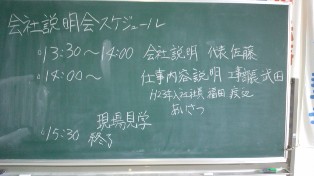 会社説明会スケジュール
13:30～14:00 会社説明 代表佐藤
14:00～ 仕事内容説明 工事部長 武田
H23年入社社員 福田
あいさつ
現場見学
15:30 終了